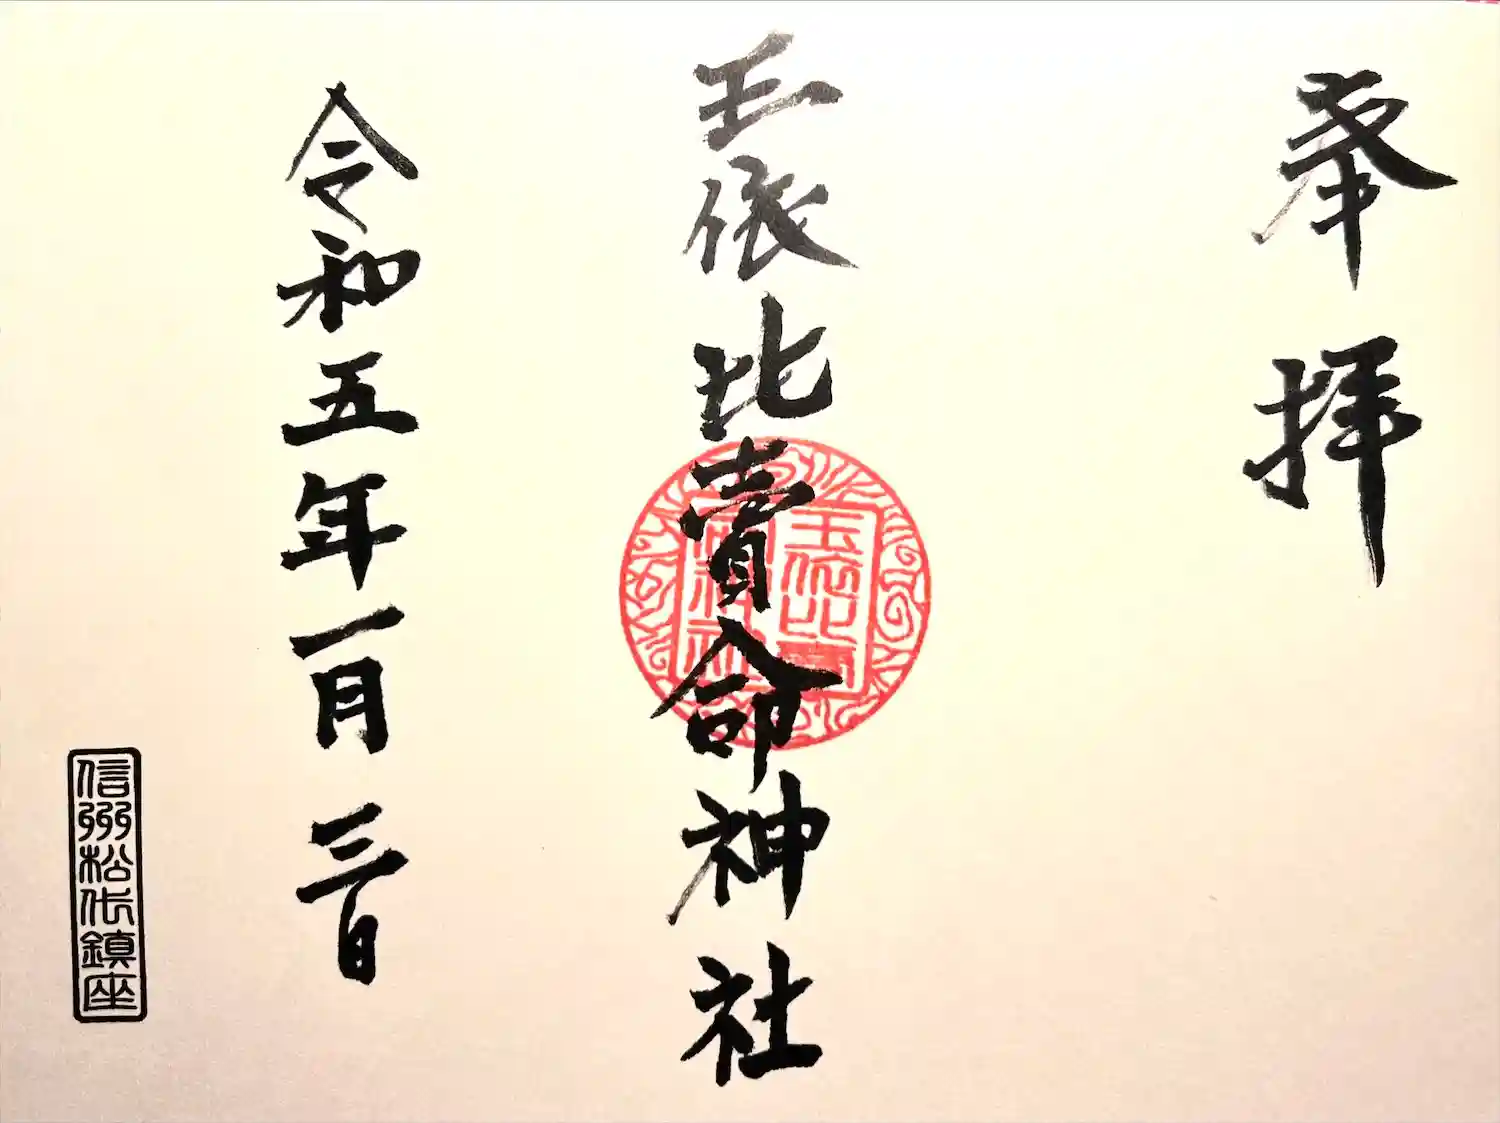 奉拝
玉依比賣命神社
玉依比賣
命神社
令和五年一月三日
信州松代鎮座